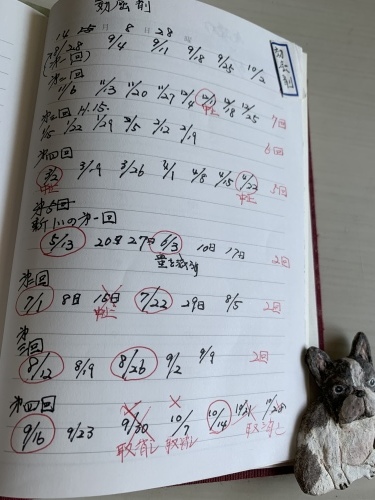 14 年 8月 28
8/28 9/4 9/11 9/18 9/25 10/2
(第一回)
第二回
11/6 11/13 11/20 11/27 12/4 12/11 12/18 12/25 7回
中止
'15.
1/15 1/22 1/29 2/5 2/12 2/19 6回
第四回
3/2 3/19 3/26 4/1 4/8 4/15 4/22
中止 中止
第5回
新しいの第一回
5/13 20日 27日 6/3 10日 17日 2回
量を減らす
第二回
7/1 8日 15日 7/22 29日 8/5 2回
中止
第三回
8/12 8/19 8/26 9/2 9/9 2回
第四回
9/16 9/23 9/30 10/7 10/14 10/21 10/28
取消し 取消し 取消し